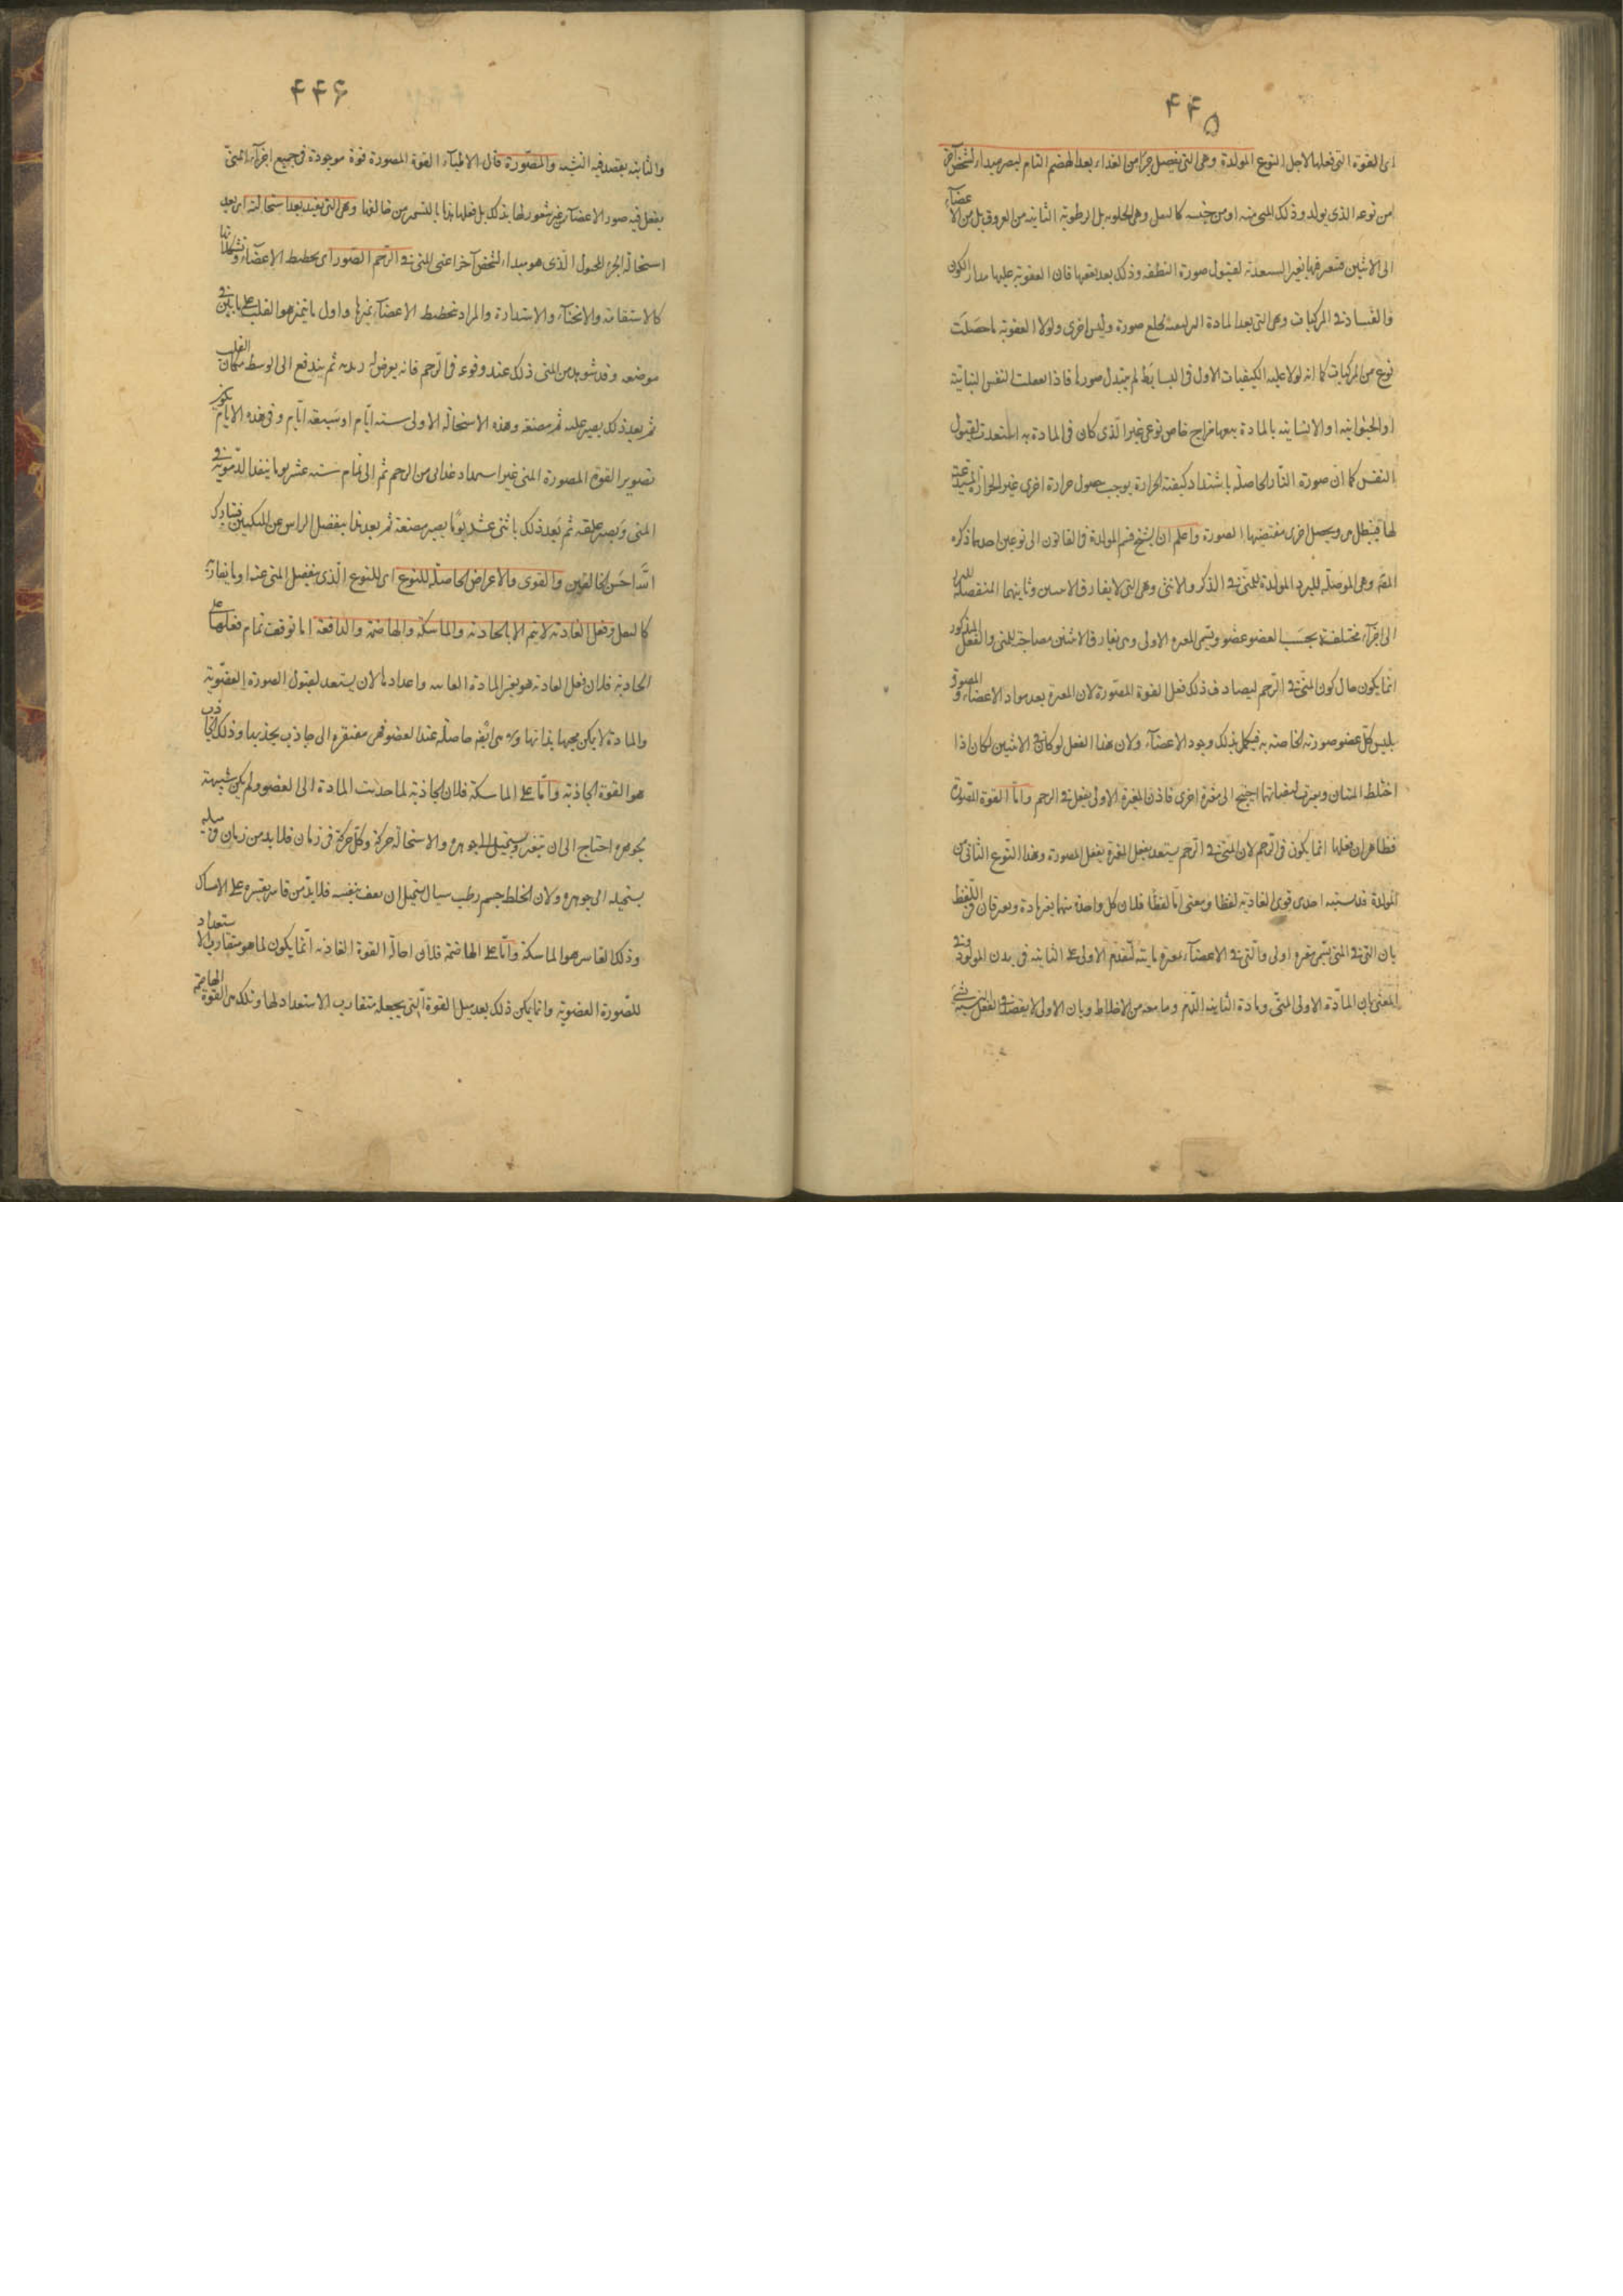 ۴۴۵
اى القوة التى فعلها لاجل النوع المولدة وهى التى تفصل جزأ من الغذاء بعد الهضم التام ليصير مبداء لشخص آخر
من نوعه الذى يولد وذلك المنى منه او من جنسه كالبغل وهى الحلوبه بل الرطوبة الثانيه من العروق بل من الاعضآء
الى الانثيين فتصرفها بغير المستعدة لقبول صورة النطفه وذلك بعد تعفنها فان العفونة عليها مدار الكون
والفساد فى المركبات وهى التى بعد المادة الى لبعثه تخلع صورة ولبس اخرى ولولا العفونة ما حصلت
نوع من المركبات كما انه لولا عليه الكيفيات الاول فى البسائط لم يتبدل صورها فاذا انفصلت النفس النباتية
او الحيوانيه او الانسانيه بالمادة تبعها مزاج خاص نوعى غير الذى كان فى المادة به استعدت لقبول
النفس كما ان صورة النار الحاصلة باشتداد كيفية الحرارة يوجب حصول حرارة اخرى غير الحرارة المستدعية
لها فيبطل هى ويحصل اخرى مقتضيتها الصورة واعلم ان الشيخ قسم المولدة فى القانون الى نوعين احدهما ذكره
المص وهى الموصله للبرد المولدة للمنى فى الذكر والانثى وهى التى لا يفارق الانثيين وثانيهما المنفصلة للمنى
الى اجزآء مختلفة بحسب العضو عضو وتسمى المغيره الاولى وهى يفارق الانثيين مصاحبة للمنى والفعل المذكور
انما يكون حال كون المنى فى الرحم ليصادف ذلك فعل القوة المصورة لان المغيرة بعد مواد الاعضاء والمصورة
يلبس كل عضو صورته الخاصه به فيكمل بذلك وجود الاعضآء ولان هذا الفعل لو كان فى الانثيين لكان اذا
اختلط المنيان وتغيرت لصفاتهما احتيج الى مغيرة اخرى فاذن المغيرة الاولى بفعل فى الرحم واما القوة المصورة
فظاهر ان فعلها انما يكون فى الرحم لان المنى فى الرحم يستعد بفعل المغيرة بفعل المصورة وهذا النوع الثانى من
المولدة قد يشتبه احدى قوى الغاذية لفظا ومعنى اما لفظا فلان كل واحدة منهما يغير مادة ويفرقان فى اللفظ
بان التى فى المنى تسمى مغيره اولى والتى فى الاعضآء مغيره ثانية لتقدم الاولى على الثانيه فى بدن المولود وفى
المعنى بان المادة الاولى المنى ومادة الثانيه الدم وما معه من الاخلاط وبان الاولى لا يقصد فى الفعل شبيها لشئ
۴۴۶
والثانيه يقصد فيه التشبه والمصورة قال الاطبآء القوة المصورة قوة موجودة فى جميع اجزآء المنى
يفعل فيه صور الاعضآء غير شعور لها بذلك بل فعلها هذا بالتسخير من خالقها وهى التى تفيد بعد استحالته اى بعد
استحالة الجزء المحول الذى هو مبداء لشخص آخر اعنى المنى فى الرحم الصور اى تخطيط الاعضآء وتشكلاتها
كالاستقامة والانحنآء والاستدارة والمراد تخطيط الاعضآء تميزها واول ما يتميز هو القلب على ما بين فى
موضعه وقد شوهد من المنى ذلك عند وقوعه فى الرحم فانه يعرض له زبديه ثم يندفع الى الوسط مكان القلب
ثم بعد ذلك يصير علقه ثم مضغه وهذه الاستحالة الاولى سته ايام او سبعة ايام وفى هذه الايام يكون
تصوير القوة المصورة المنى غير استمداد غذائى من الرحم ثم الى تمام ستة عشر يوما ينفذ الدموية فى
المنى ويصير علقه ثم بعد ذلك باثنى عشر يوما يصير مضغة ثم بعد هذا ينفصل الراس عن المنكبين فتبارك
الله احسن الخالقين والقوى والاعراض الحاصلة للنوع اى للنوع الذى ينفصل المنى عنه او ما يقاربه
كالبغل وفعل الغاذيه لا يتم الا بالجاذبه والماسكة والهاضمة والدافعة اما توقف تمام فعلها على
الجاذبة فلان فعل الغاذيه هو تغير المادة الغاذيه واعدادها لان يستعد لقبول الصورة العضوية
والمادة لا يمكن مجيها بذاتها وهى ايضا حاصلة عند العضو فهى مفتقرة الى جاذب يجذبها وذلك الجاذب
هو القوة الجاذبة واما على الماسكة فلان الجاذبة لما جذبت المادة الى العضو ولم يكن شبيهة
بجوهره احتاج الى ان تتغير ويستحيل الى جوهره والاستحالة حركة وكل حركة فى زمان فلا بد من زمان فى مثله
يستحيله الى جوهره ولان الخلط جسم رطب سيال يستحيل ان يقف بنفسه فلا بد من قاسر يقسره على الامساك
وذلك القاسر هو الماسكة واما على الهاضمة فلان احالة القوة الغاذيه انما يكون لما هو متقارب الاستعداد
للصورة العضوية وانما يمكن ذلك بعد ميل القوة التى يجعله متقارب الاستعداد لها وتلك هى القوة الهاضمة